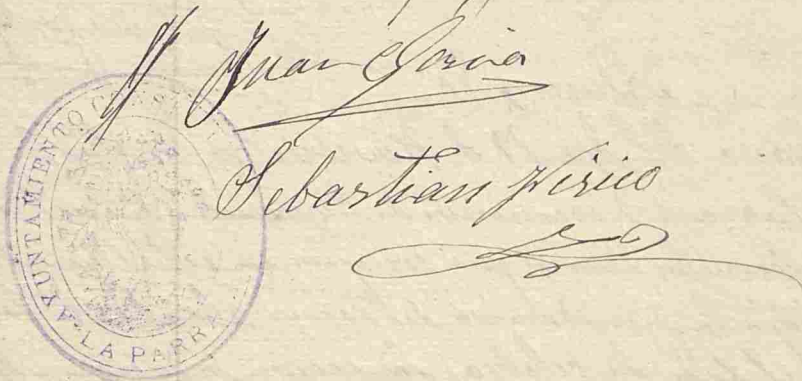 Juan Garcia
Sebastian
AYUNTAMIENTO
LA PARRA